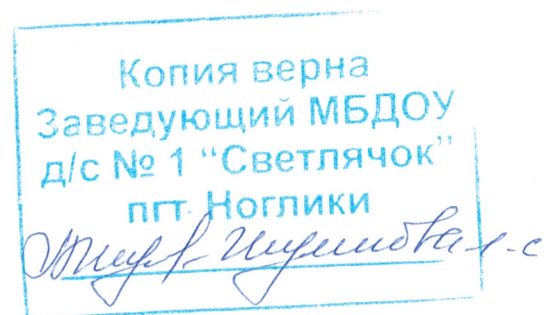 Копия верна
Заведующий МБДОУ
д/с № 1 “Светлячок”
пгт. Ноглики